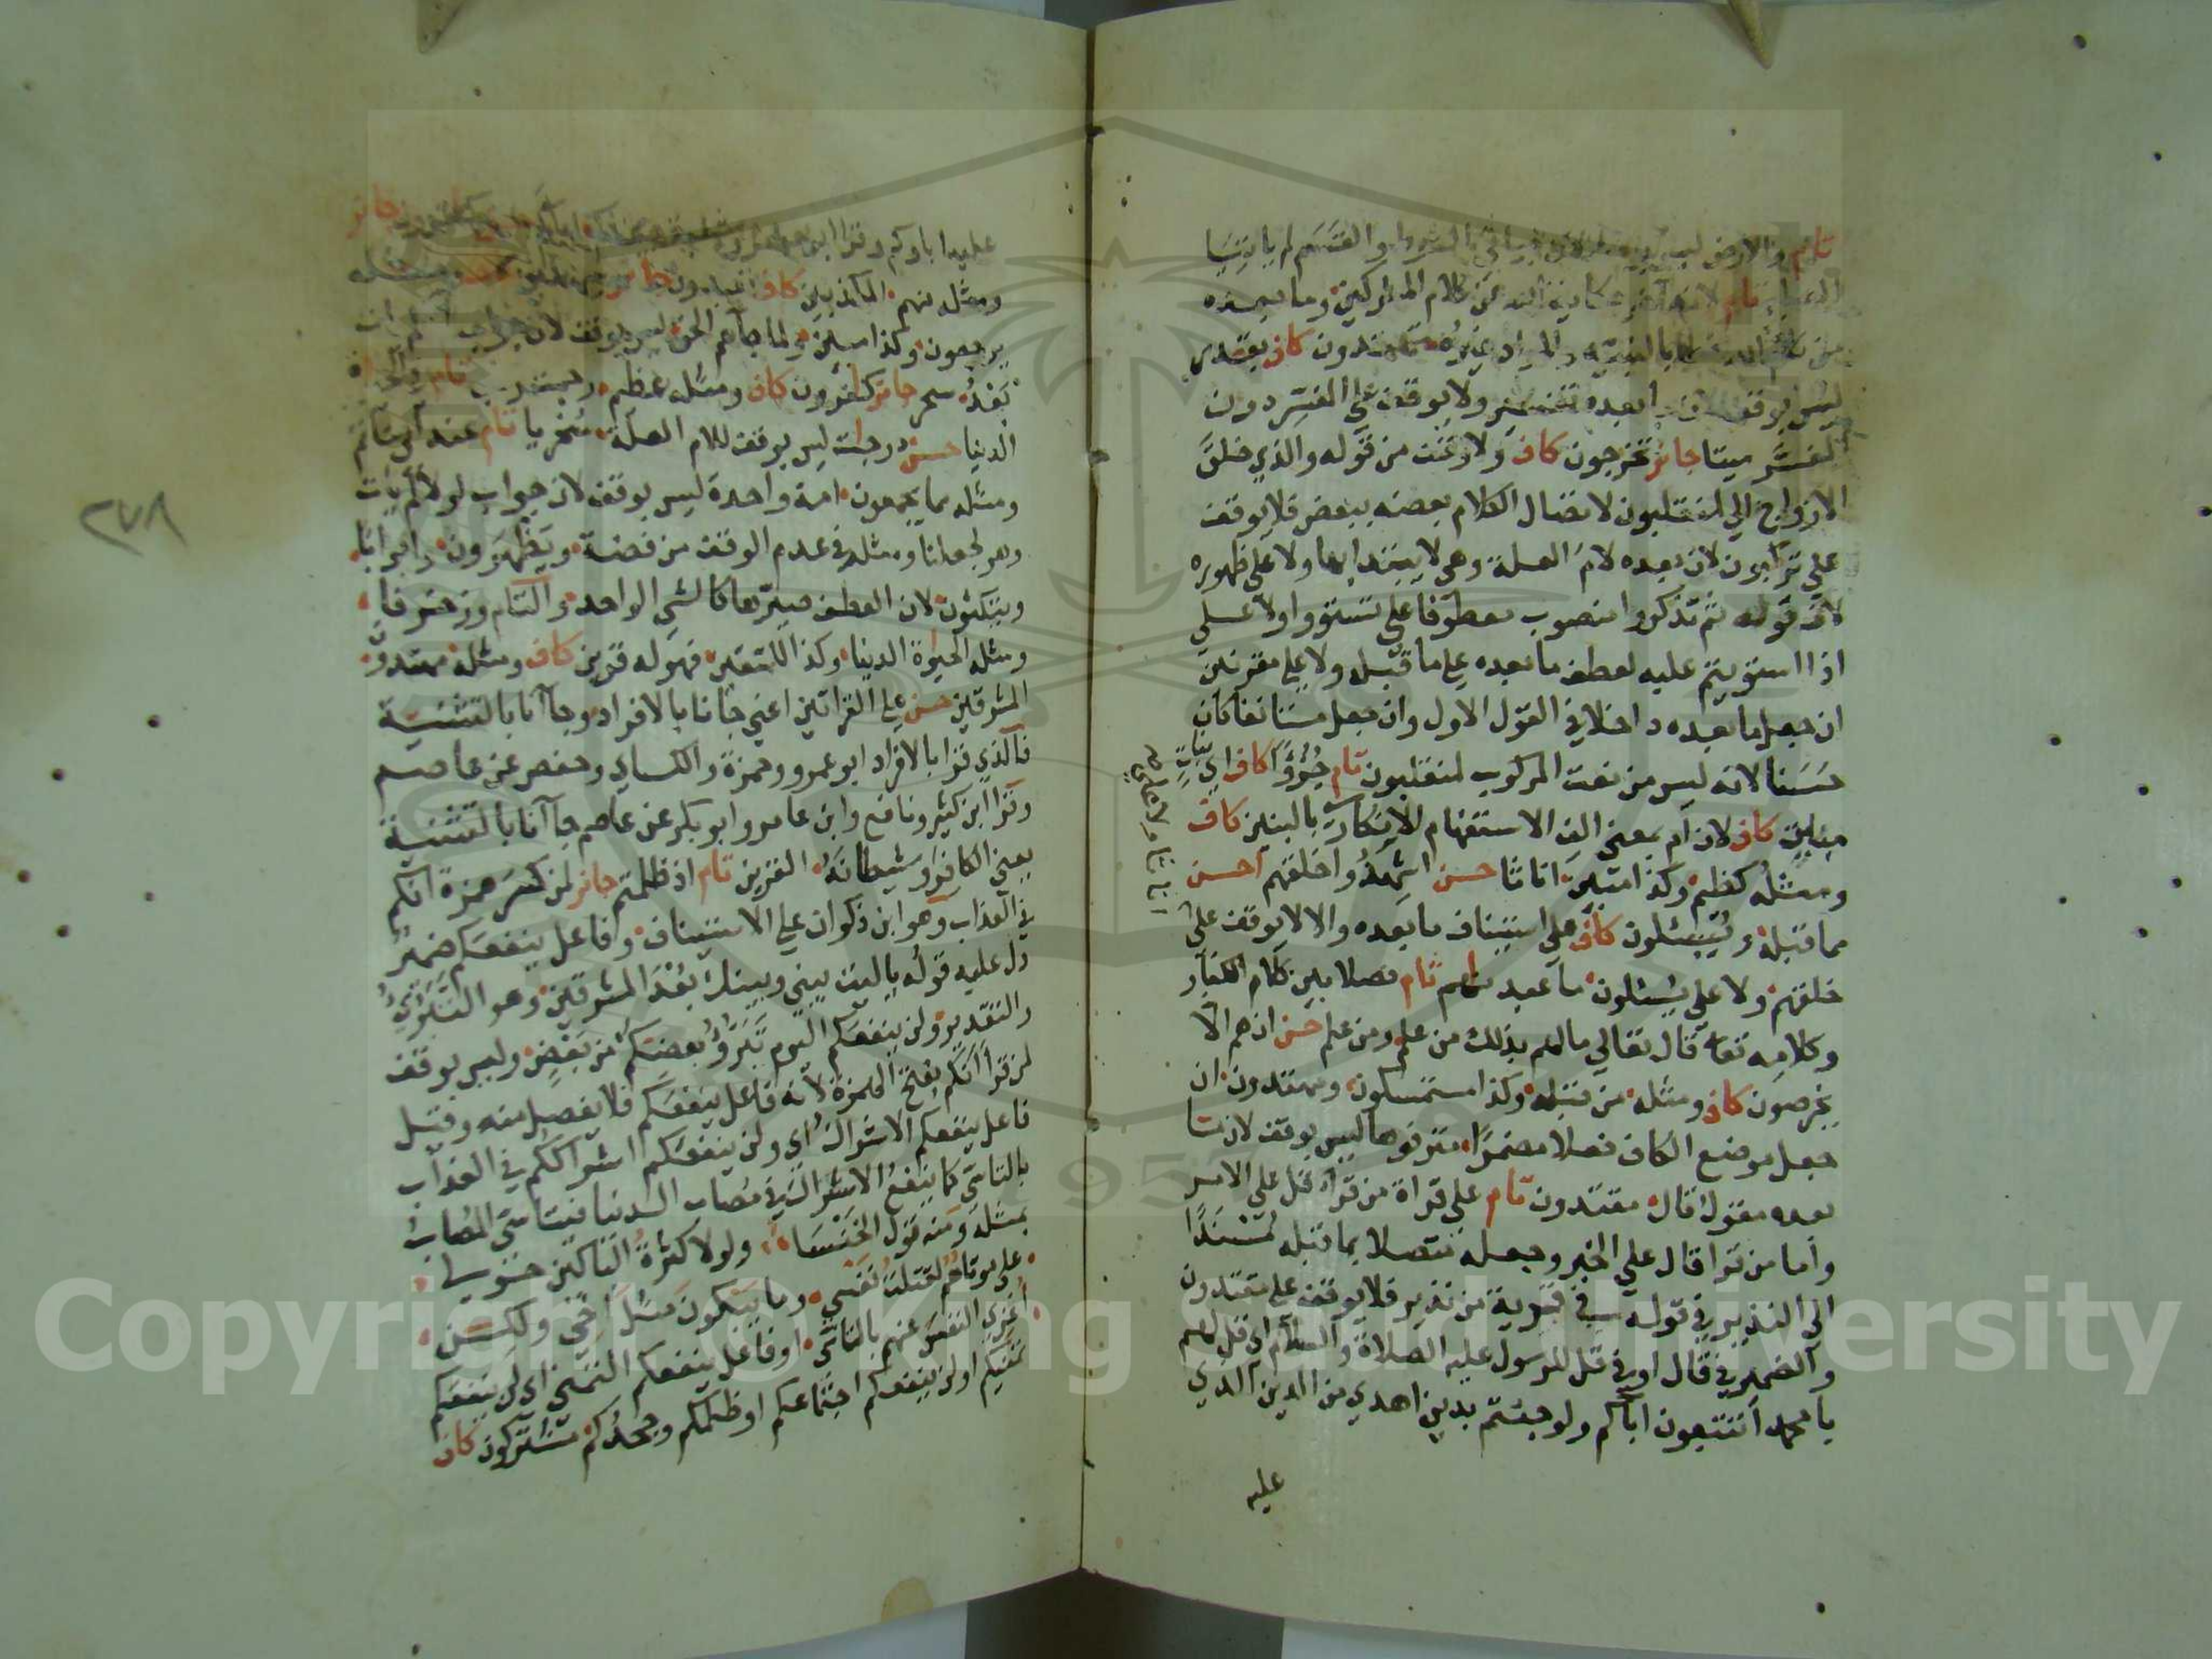 تام والارض ليس لانه لا يؤتى بالشرط والقسم لم يأتيا
العليم تام لانه آخر حكاية الله عن كلام المشركين وما بعده
من كلام الله بالنية والمراد غيره تهتدون كاف بقدر
ليس بوقف لان ما بعده تفسير ولا يوقف على المفسر دون
المفسر ميتا جائز تخرجون كاف ولا وقف من قوله والذي خلق
الازواج الى لمنقلبون لاتصال الكلام بعضه ببعض فلا يوقف
على تركبون لان بعده لام العلة وهي لا يبتدا بها ولا على ظهوره
لان قوله ثم تذكروا منصوب معطوفا على تستووا ولا على
اذا استويتم عليه لعطف ما بعده على ما قبله ولا على مقرنين
ان جعل ما بعده داخلا في القول الاول وان جعل مستانفا كان
حسنا لانه ليس من نعت المركوب لمنقلبون تام جزؤا كاف اي بنات
مبين كاف لان ام بمعنى الف الاستفهام الانكاري بالبنين كاف
ومثله كظيم وكذا مبين اناثا حسن اشهدوا خلقهم احسن
مما قبله ويسئلون كاف على استيناف ما بعده والا لا يوقف على
خلقهم ولا على يسئلون ما عبدناهم تام فصلا بين كلام الكفار
وكلامه تعا قال تعالى مالهم بذلك من علم ومن علم حسن ان هم الا
يخرصون كاف ومثله من قبله وكذا مستمسكون ومهتدون ان
جعل موضع الكاف فعلا مضمرا مترفوها ليس بوقف لان ما
بعده مقول قال مقتدون تام على قراة من قرا قل على الامر
واما من قرا قال على الخبر وجعله متصلا بما قبله مسندا
الى النذير في قوله في قرية من نذير فلا يوقف على مقتدون
والضمير في قال او في قل للرسول عليه الصلاة والسلام اي قل لهم
يا محمد اتتبعون اباكم ولو جئتم بدين اهدى من الدين الذي
عليه
عليه اباوكم وقرا ابن عامر جائز
ومثله منهم المكذبين كاف تعبدون جائز
يرجعون وكذا مبين ولما جاهم الحق ليس بوقف لان جواب
بعد سحر جائز كافرون كاف ومثله عظيم رحمت ربك تام
الدنيا حسن درجات ليس بوقف للام العلة سخريا تام عند ابي حاتم
ومثله مما يجمعون امة واحدة ليس بوقف لان جواب لولا لم يات
وهو لجعلنا ومثله في عدم الوقف من فضة ويظهرون وابوابا
ويتكئون لان العطف صيرها كالشي الواحد والتام وزخرفا
ومثله الحيوة الدنيا وكذا للمتقين فهو له قرين كاف ومثله مهتدون
المشرقين حسن على القراتين اعني جانا بالافراد وجاآنا بالتثنية
فالذي قرا بالافراد ابو عمرو وحمزة والكساي وحفص عن عاصم
وقرا ابن كثير ونافع وابن عامر وابو بكر عن عاصم جاآنا بالتثنية
يعني الكافر وشيطانه القرين تام اذ ظلمتم جائز لمن كسر همزة انكم
في العذاب وهو ابن ذكوان على الاستيناف وفاعل ينفعكم ضمير
دل عليه قوله يا ليت بيني وبينك بعد المشرقين وهو التبري
والتقدير ولن ينفعكم اليوم تبرؤ بعضكم من بعض وليس بوقف
لمن قرا انكم بفتح الهمزة لانه فاعل ينفعكم فلا يفصل منه وقيل
فاعل ينفعكم الاشراك اي ولن ينفعكم اشراككم في العذاب
بالتاسي كما ينفع الاشتراك في مصاب الدنيا فيتاسى المصاب
بمثله ومنه قول الخنساء ولولا كثرة الباكين حولي
على موتاهم لقتلت نفسي وما يبكون مثل اخي ولكن
اعزي النفس عنهم بالتاسي او فاعل ينفعكم التمني اي لن ينفعكم
تمنيكم او لن ينفعكم اجتماعكم او ظلمكم وجحدكم مشتركون كاف
٢٧٨
Copyright © King Saud University
1957